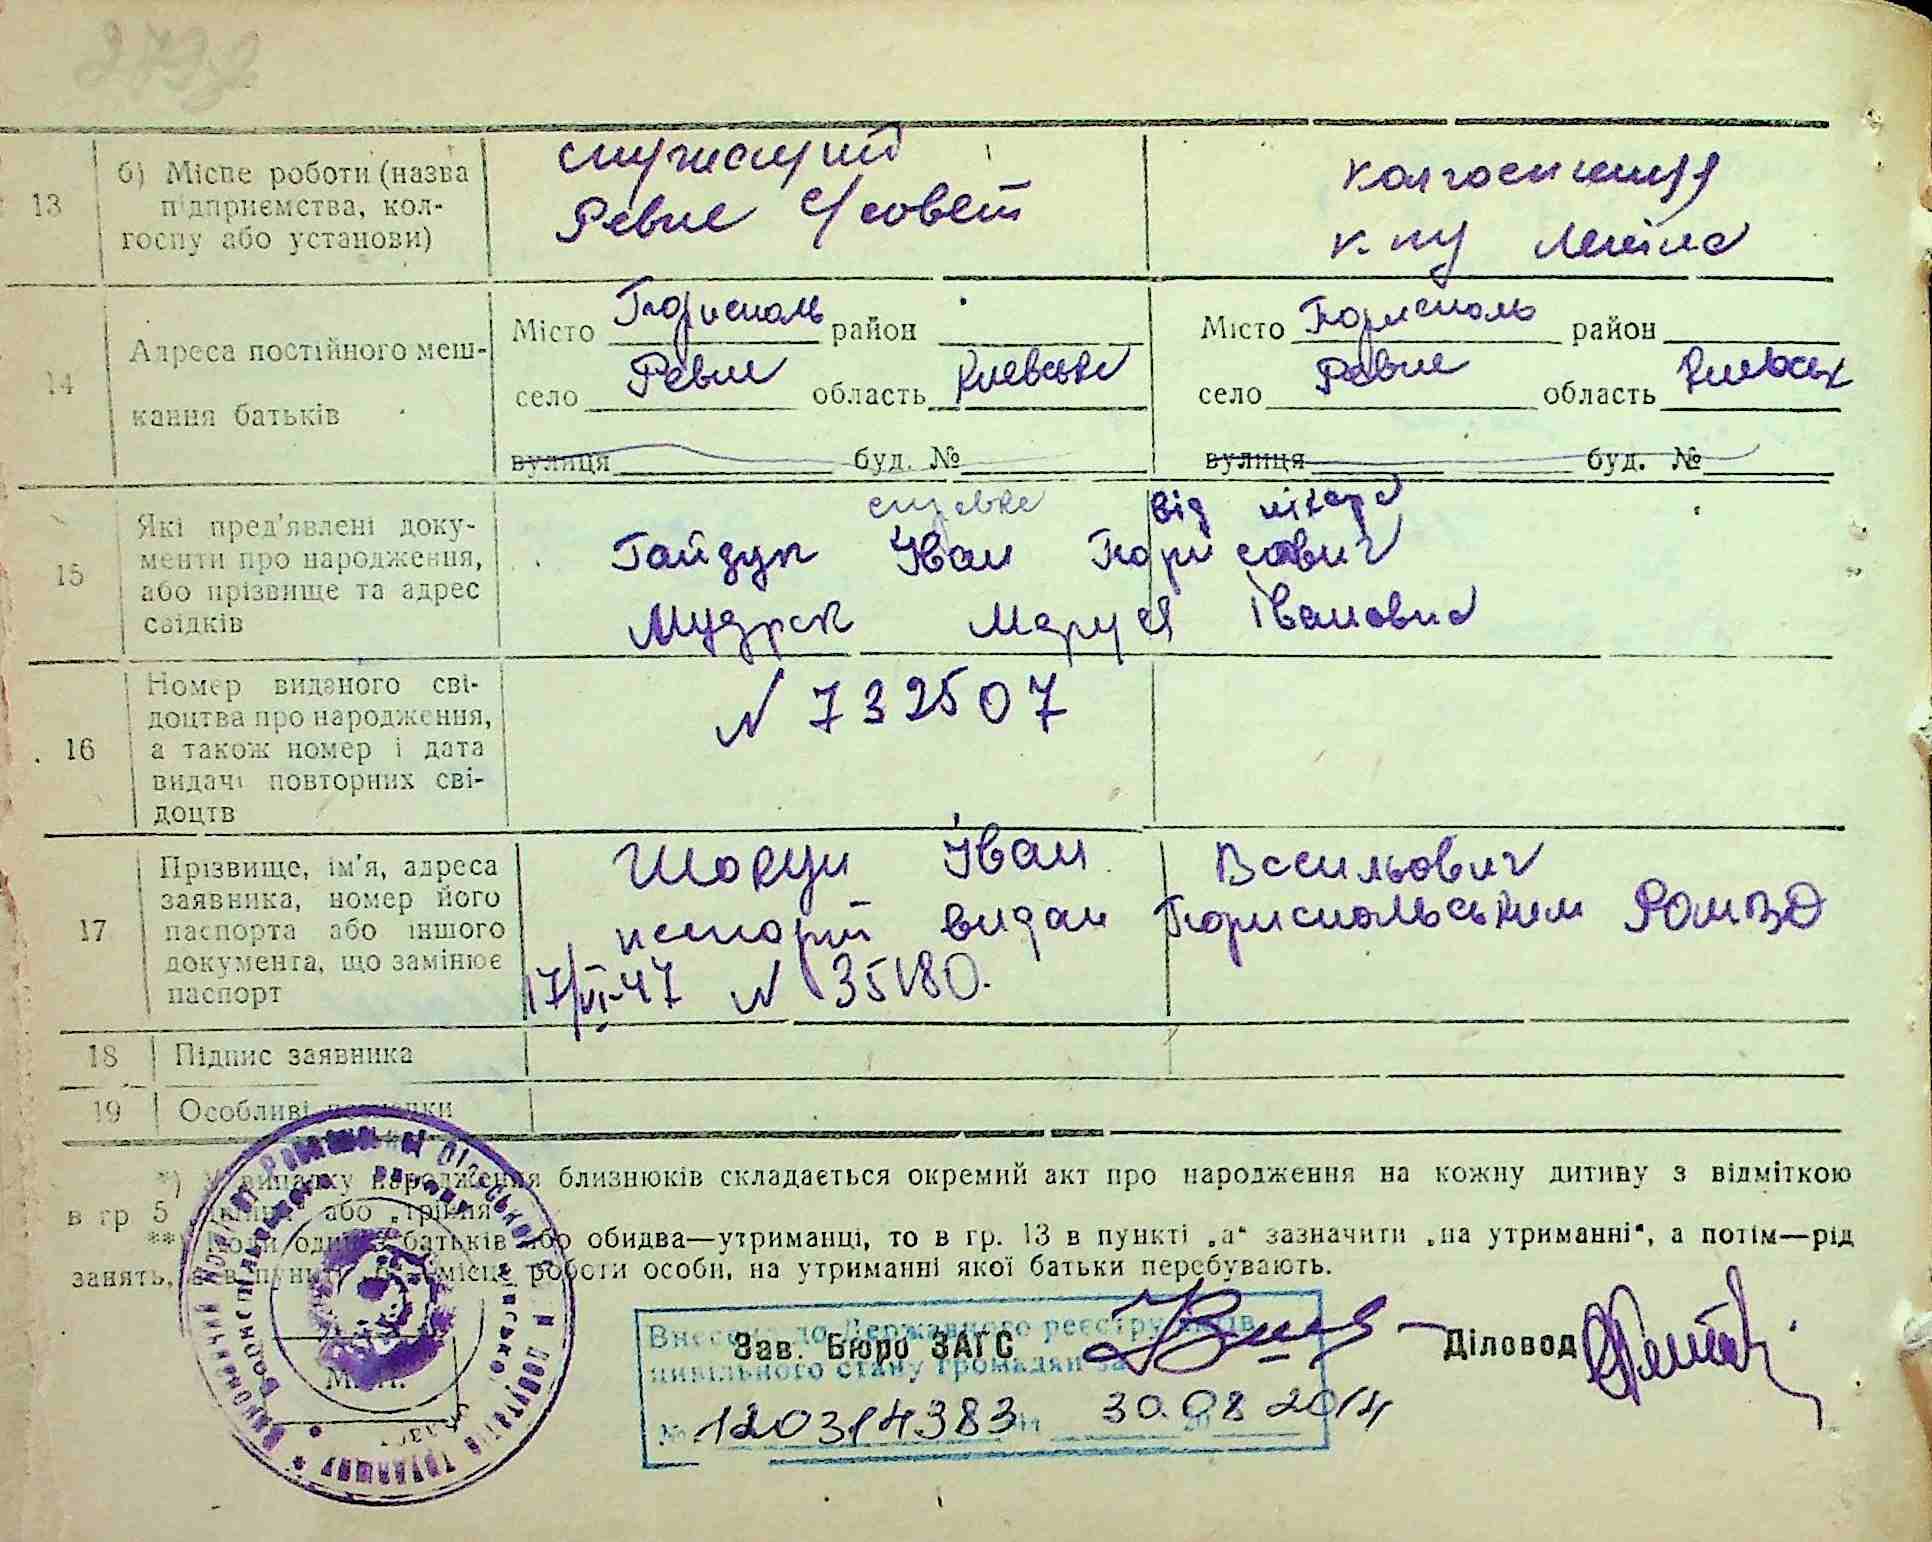 273
13
б) Місце роботи (назва
підприємства, кол-
госпу або установи)
служащий
Ревне с/совет
колгоспниця
к-пу Леніна
14
Адреса постійного меш-
кання батьків
Місто Борисполь район
село Ревне область Киевська
вулиця буд. №
Місто Борисполь район
село Ревне область Киевськ
вулиця буд. №
15
Які пред'явлені доку-
менти про народження,
або прізвище та адрес
свідків
справка від лікаря
Гайдук Іван Борисович
Маруся Івановна
16
Номер виданого сві-
доцтва про народження,
а також номер і дата
видачі повторних сві-
доцтв
N 732507
17
Прізвище, ім'я, адреса
заявника, номер його
паспорта або іншого
документа, що замінює
паспорт
Іван Васильович
паспорт видан Бориспольським РОМВД
17/VI-47 N 35180.
18
Підпис заявника
19
Особливі
*) У випадку народження близнюків складається окремий акт про народження на кожну дитину з відміткою
в гр 5 „двійня“ або „трійня“
**) Коли один з батьків або обидва—утриманці, то в гр. 13 в пункті „а“ зазначити „на утриманні“, а потім—рід
занять, а в пункті місце роботи особи, на утриманні якої батьки перебувають.
М.П.
Внесено до Державного реєстру актів
цивільного стану громадян за
№ 120314383 від 30.08 2014
Зав. Бюро ЗАГС
Діловод